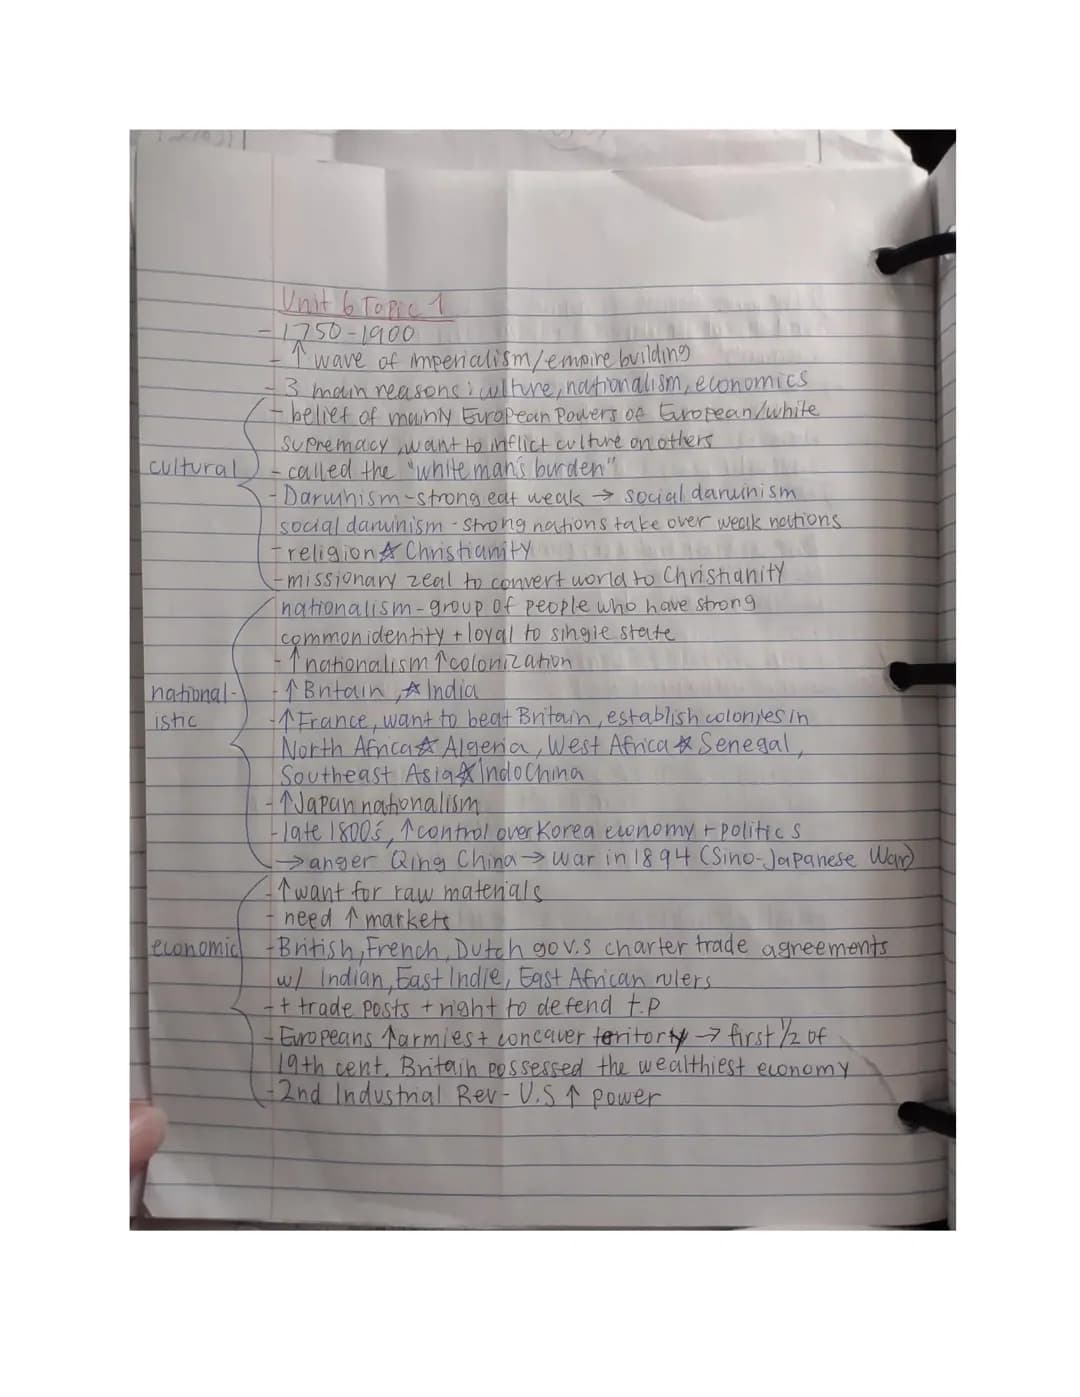 Unit 6 Topic 1
- 1750-1900
- ↑ wave of imperialism/empire building
- 3 main reasons: culture, nationalism, economics
- belief of mainly European Powers of European/white
supremacy, want to inflict culture on others
cultural - called the "white man's burden"
- Darwinism - strong eat weak → social darwinism
social darwinism - strong nations take over weak nations
- religion ☆ Christianity
- missionary zeal to convert world to Christianity
nationalism - group of people who have strong
common identity + loyal to single state
- ↑ nationalism ↑ colonization
national- - ↑ Britain, ☆ India
istic - ↑ France, want to beat Britain, establish colonies in
North Africa ☆ Algeria, West Africa ☆ Senegal,
Southeast Asia ☆ IndoChina
- ↑ Japan nationalism
- late 1800's, ↑ control over Korea economy + politics
→ anger Qing China → war in 1894 (Sino-Japanese War)
- ↑ want for raw materials
- need ↑ markets
economic - British, French, Dutch gov.s charter trade agreements
w/ Indian, East Indie, East African rulers
- + trade posts + right to defend t.p
- Europeans ↑ armies + concquer teritorty → first ½ of
19th cent. Britain possessed the wealthiest economy
- 2nd Industrial Rev - U.S ↑ power